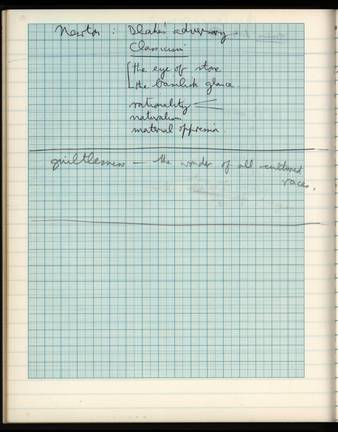 Newton : Blake's adversary
Classicism
the eye of stone
the basilisk glance.
rationality
naturalism
material oppression
guiltlessness – the wonder of all cultured
races.